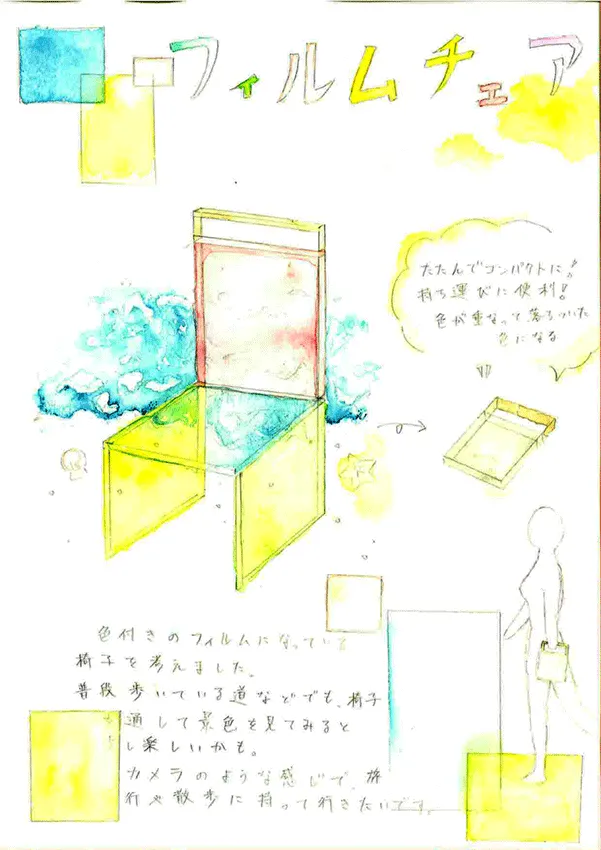 フィルムチェア
たたんでコンパクトに♪
持ち運びに便利!
色が重なって落ちついた
色になる
色付きのフィルムになっている
椅子を考えました。
普段歩いている道などでも、椅子
を通して景色を見てみると
し楽しいかも。
カメラのような感じで、旅
行や散歩に持って行きたいです。